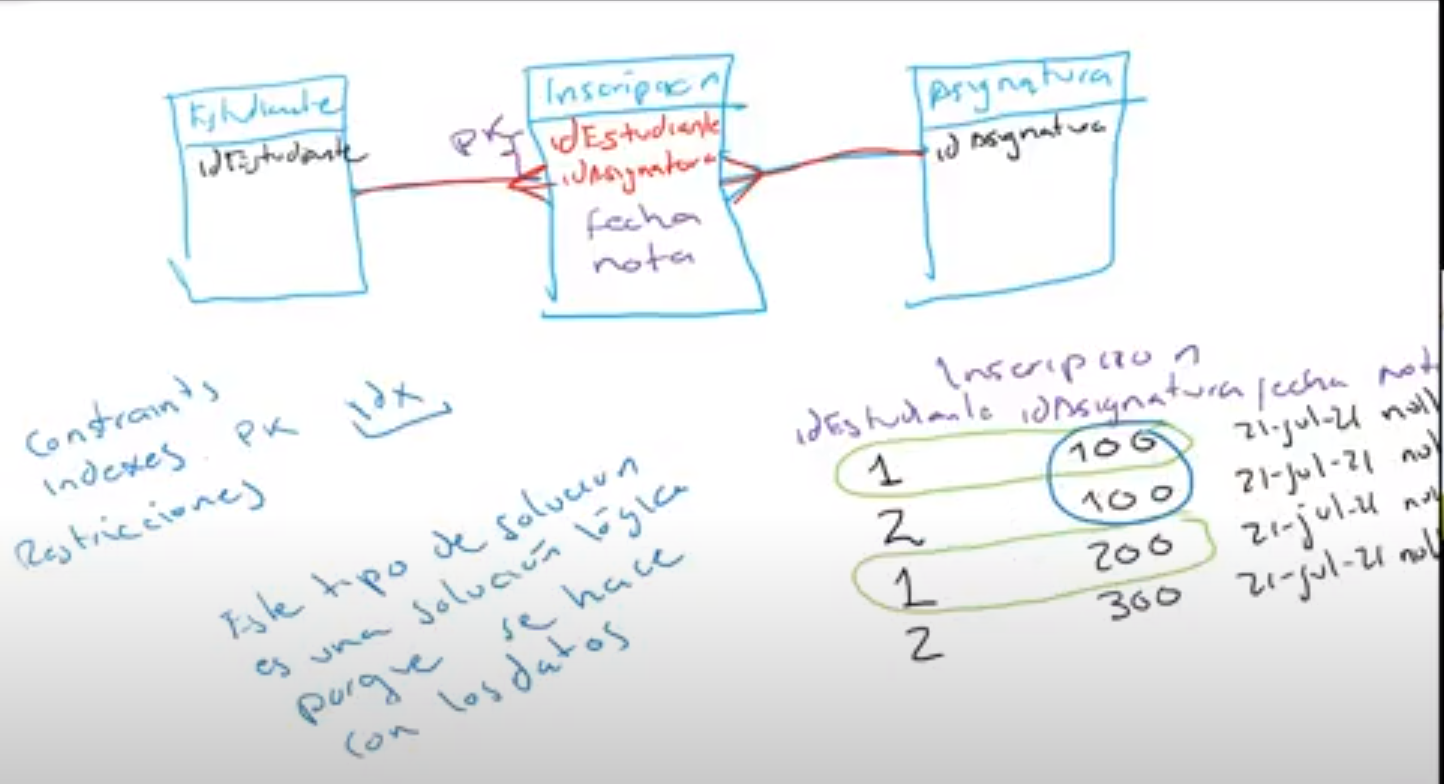 Estudiante
idEstudiante
PK
Inscripcion
idEstudiante
idAsignatura
fecha
nota
Asignatura
idAsignatura
Constraints
indexes PK Idx
Restricciones
Este tipo de solución
es una solución lógica
porque se hace
con los datos
Inscripcion
idEstudiante idAsignatura fecha
1 100 21-jul-21 null
2 100 21-jul-21
1 200 21-jul-21
2 300 21-jul-21